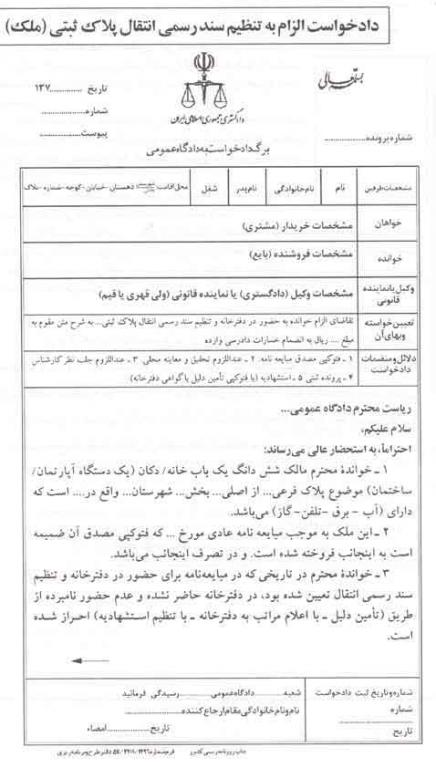 دادخواست الزام به تنظیم سند رسمی انتقال پلاک ثبتی (ملک)
بسمه تعالی
تاریخ ............ ۱۳۷
شماره:....................
پیوست....................
دادگستری جمهوری اسلامی ایران
شماره پرونده....................
برگ دادخواست به دادگاه عمومی
مشخصات طرفین نام نام خانوادگی نام پدر شغل محل اقامت دهستان-خیابان-کوچه-شماره-پلاک
خواهان مشخصات خریدار (مشتری)
خوانده مشخصات فروشنده (بایع)
وکیل یا نماینده قانونی مشخصات وکیل (دادگستری) یا نماینده قانونی (ولی قهری یا قیم)
تعیین خواسته وبهای آن تقاضای الزام خوانده به حضور در دفترخانه و تنظیم سند رسمی انتقال پلاک ثبتی... به شرح متن مقوم به
مبلغ ... ریال به انضمام خسارات دادرسی وارده
دلائل ومنضمات دادخواست ۱ ـ فتوکپی مصدق مبایعه نامه. ۲ ـ عنداللزوم تحقیق و معاینه محلی. ۳ ـ عنداللزوم جلب نظر کارشناس
۴ ـ پرونده ثبتی ۵ ـ استشهادیه (یا فتوکپی تأمین دلیل یا گواهی دفترخانه)
ریاست محترم دادگاه عمومی...
سلام علیکم،
احتراماً، به استحضار عالی می‌رساند:
۱ ـ خواندهٔ محترم مالک شش دانگ یک باب خانه/ دکان (یک دستگاه آپارتمان/
ساختمان) موضوع پلاک فرعی... از اصلی... بخش... شهرستان... واقع در.... است که
دارای (آب - برق -تلفن-گاز) می‌باشد.
۲ ـ این ملک به موجب مبایعه نامه عادی مورخ ... که فتوکپی مصدق آن ضمیمه
است به اینجانب فروخته شده است. و در تصرف اینجانب می‌باشد.
۳ ـ خواندهٔ محترم در تاریخی که در مبایعه‌نامه برای حضور در دفترخانه و تنظیم
سند رسمی انتقال تعیین شده بود، در دفترخانه حاضر نشده و عدم حضور نامبرده از
طریق (تأمین دلیل ـ با اعلام مراتب به دفترخانه ـ با تنظیم استشهادیه) احراز شده
است.
شماره وتاریخ ثبت دادخواست
شماره
تاریخ
شعبه.............. دادگاه عمومی.............. رسیدگی فرمائید
نام ونام خانوادگی مقام ارجاع کننده....................
تاریخ.................... امضاء
چاپ روزنامه رسمی کشور